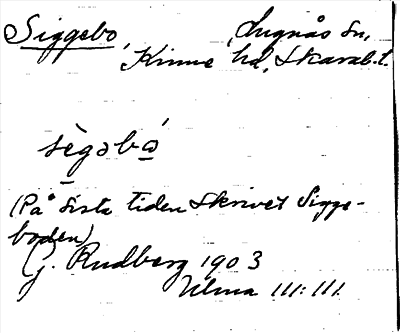 Siggebo, Lugnås sn,
Kinne hd, Skarab.l.
sègəbó̱
(På sista tiden skrivet Sigge-
boden)
G. Rudberg 1903
Ulma 111:111.